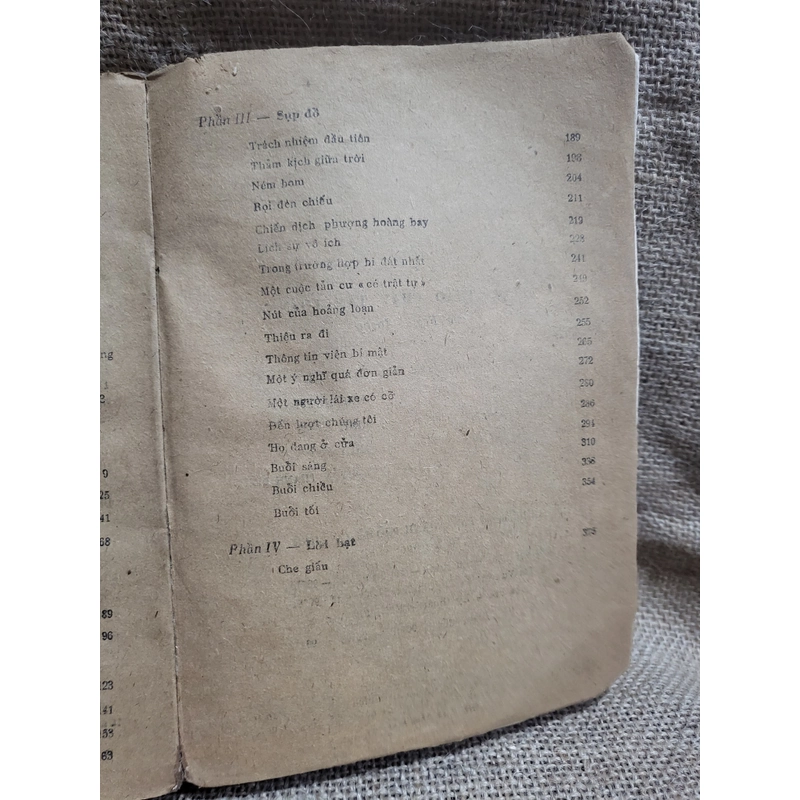 ng
2
9
25
41
68
89
96
23
41
58
63
Phần III — Sụp đổ
Trách nhiệm đầu tiên 189
Thảm kịch giữa trời 198
Ném bom 204
Rọi đèn chiếu 211
Chiến dịch phượng hoàng bay 219
Lịch sự vô ích 228
Trong trường hợp bi đát nhất 241
Một cuộc tản cư «có trật tự» 249
Nút của hoảng loạn 252
Thiệu ra đi 255
Thông tin viên bí mật 265
Một ý nghĩ quá đơn giản 272
Một người lái xe có cỡ 280
Đến lượt chúng tôi 286
Họ đang ở cửa 294
Buổi sáng 310
Buổi chiều 338
Buổi tối 354
Phần IV — Lời bạt
Che giấu 375